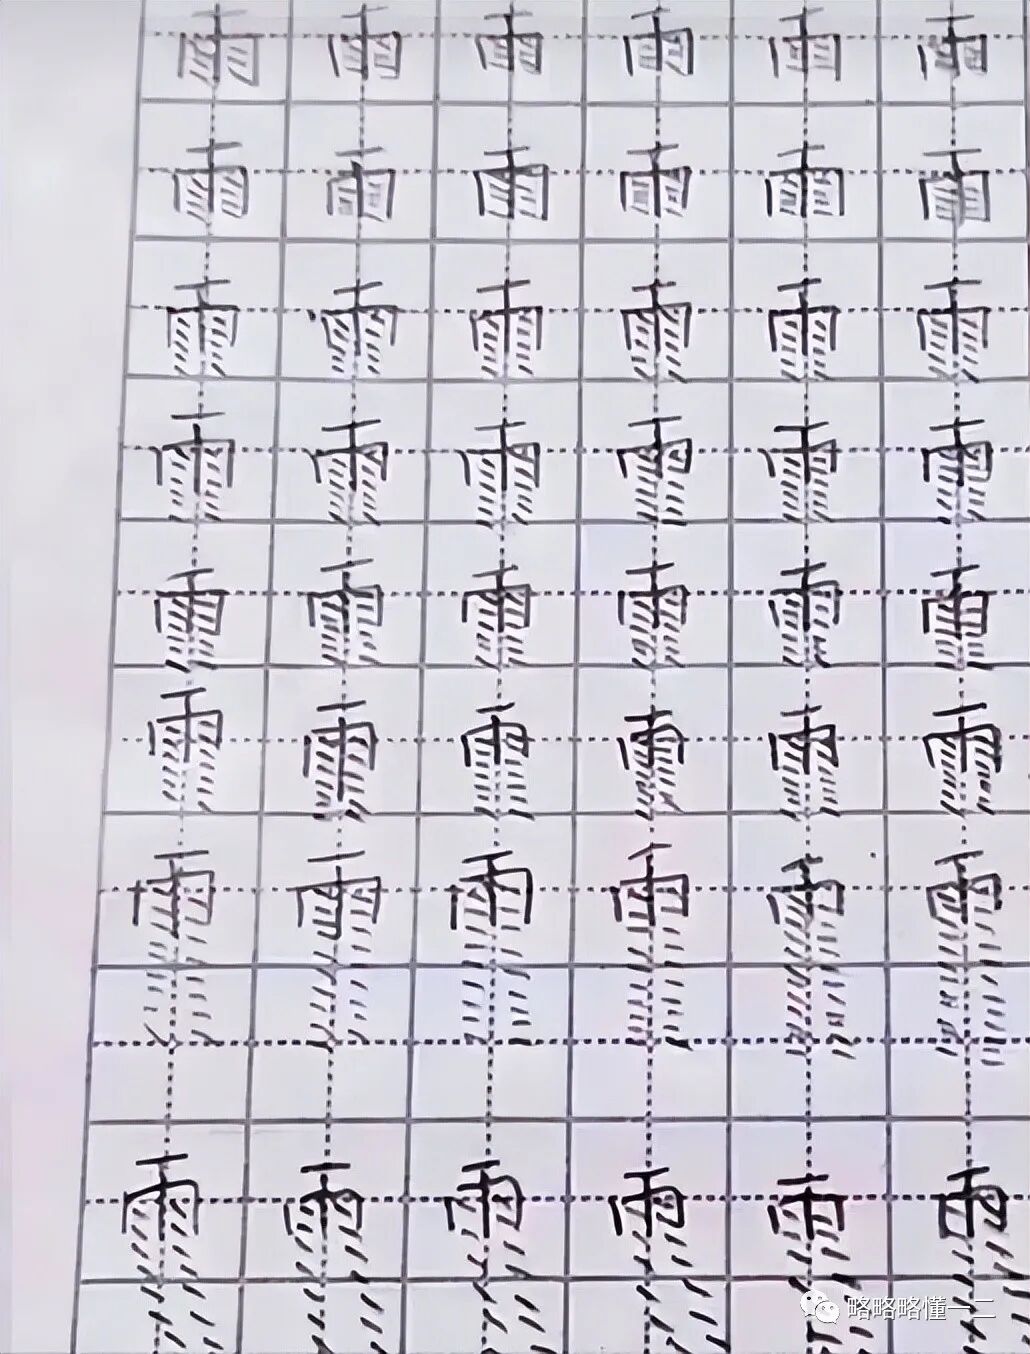 雨 雨 雨 雨 雨 雨
雨 雨 雨 雨 雨 雨
雨 雨 雨 雨 雨 雨
雨 雨 雨 雨 雨 雨
雨 雨 雨 雨 雨 雨
雨 雨 雨 雨 雨 雨
雨 雨 雨 雨 雨 雨
雨 雨 雨 雨 雨 雨
略略略懂一二